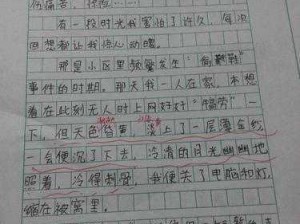 有一段时光我害怕了许久,每次
回想都让我惊心动魄。
那是小区里频繁发生"偷鞋
事件的时期。那天我一人在家,本想
着在此刻无人时上网好好"犒劳"一
下。但天色昏黄,上了一层
一会便沉了下去,冷清的月光幽幽地
照着,冷得刺骨,我便关了电脑和灯,
缩在被窝里。